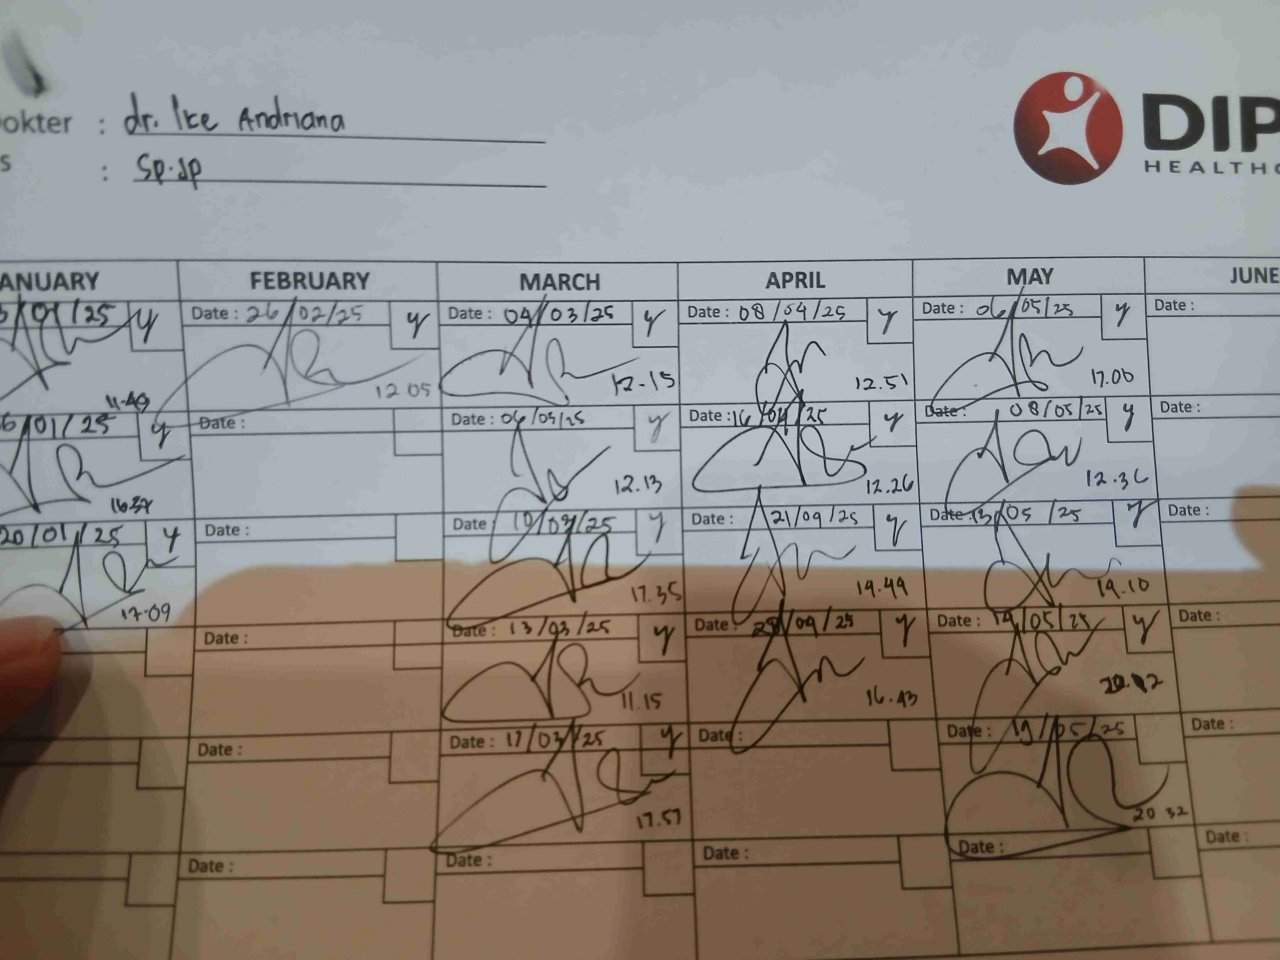 okter : dr. Ike Andriana
s : Sp.JP
DIP
HEALTHC
ANUARY FEBRUARY MARCH APRIL MAY JUNE
/01/25 y Date : 26/02/25 y Date : 04/03/25 y Date : 08/04/25 y Date : 06/05/25 y Date :
11.49 12 05 12.15 12.51 17.00
6/01/25 y Date : Date : 06/03/25 y Date : 16/04/25 y Date : 08/05/25 y Date :
16.37 12.13 12.26 12.36
20/01/25 y Date : Date : 10/03/25 y Date : 21/04/25 y Date : 13/05/25 y Date :
17.09 17.35 19.49 19.10
Date : Date : 13/03/25 y Date : 28/04/25 y Date : /05/25 y Date :
11.15 16.43
Date : Date : 17/03/25 y Date : Date : 19/05/25 Date :
17.57 20 32
Date : Date : Date : Date : Date :